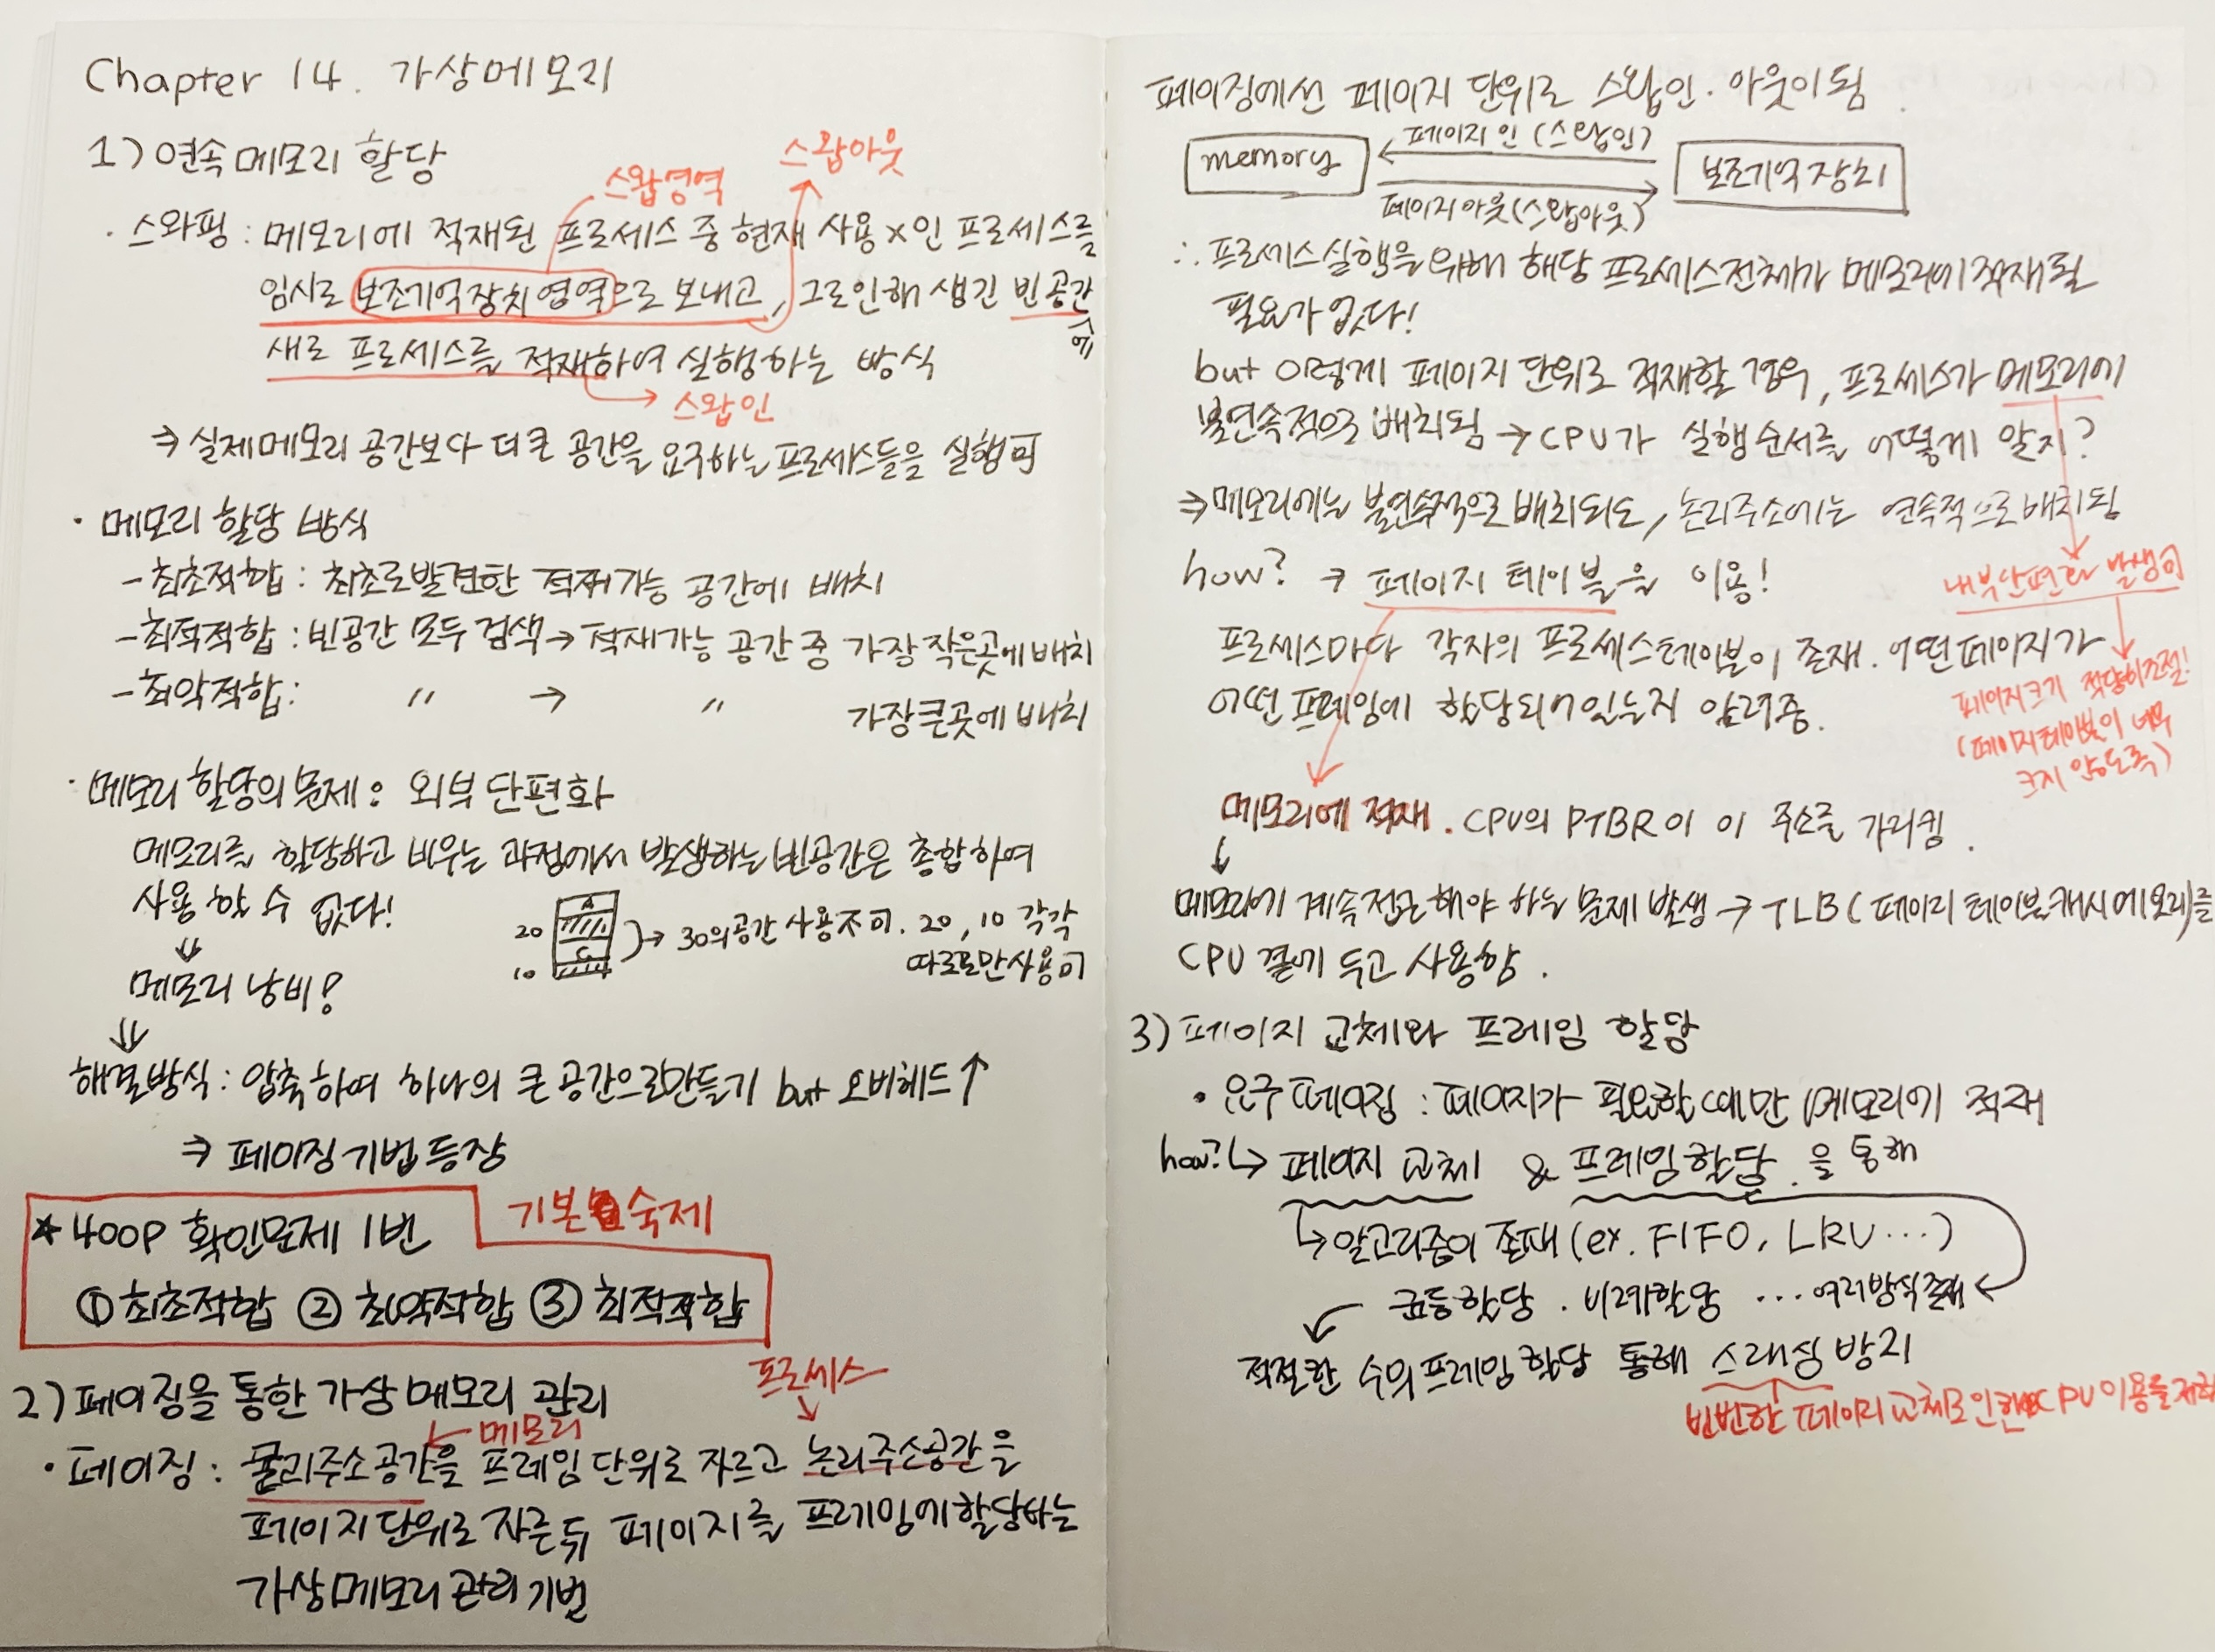 Chapter 14. 가상메모리
1) 연속메모리 할당
스왑영역
스왑아웃
· 스와핑 : 메모리에 적재된 프로세스 중 현재 사용 x인 프로세스를
임시로 보조기억장치 영역으로 보내고, 그로인해 생긴 빈공간에
새로 프로세스를 적재하여 실행하는 방식
스왑인
⇒ 실제메모리 공간보다 더 큰 공간을 요구하는 프로세스들을 실행 可
· 메모리 할당 방식
- 최초적합 : 최초로발견한 적재가능 공간에 배치
- 최적적합 : 빈공간 모두 검색 → 적재가능 공간 중 가장 작은곳에 배치
- 최악적합 : 〃 → 〃 가장큰곳에 배치
· 메모리 할당의 문제 : 외부 단편화
메모리를 할당하고 비우는 과정에서 발생하는 빈공간은 총합하여
사용할 수 없다!
A
20
C
10
→ 30의 공간 사용 不可. 20, 10 각각
따로로만 사용 可
↓
메모리 낭비!
⇓
해결방식 : 압축하여 하나의 큰 공간으로만들기 but 오버헤드↑
⇒ 페이징 기법 등장
기본 숙제
☆ 400P 확인문제 1번
① 최초적합 ② 최악적합 ③ 최적적합
2) 페이징을 통한 가상메모리 관리
프로세스
← 메모리
· 페이징 : 물리주소공간을 프레임 단위로 자르고 논리주소공간을
페이지 단위로 자른 뒤 페이지를 프레임에 할당하는
가상메모리 관리 기법
페이징에선 페이지 단위로 스왑인 · 아웃이 됨
memory
페이지 인 (스왑인)
보조기억장치
페이지 아웃(스왑아웃)
∴ 프로세스실행을 위해 해당 프로세스전체가 메모리에 적재될
필요가 없다!
but 이렇게 페이지 단위로 적재할 경우, 프로세스가 메모리에
불연속적으로 배치됨 → CPU가 실행순서를 어떻게 알지?
⇒ 메모리에는 불연속적으로 배치되도, 논리주소에는 연속적으로 배치됨
how? → 페이지 테이블을 이용!
내부단편화 발생 可
프로세스마다 각자의 프로세스테이블이 존재. 어떤페이지가
어떤 프레임에 할당되어있는지 알려줌.
페이지크기 적당히조절!
(페이지테이블이 너무
크지 않도록)
메모리에 적재. CPU의 PTBR이 이 주소를 가리킴.
↓
메모리에 계속접근해야 하는 문제 발생 → TLB (페이지 테이블 캐시메모리)를
CPU 곁에 두고 사용함.
3) 페이지 교체와 프레임 할당
· 요구페이징 : 페이지가 필요할 때만 메모리에 적재
how? ↳ 페이지 교체 & 프레임할당 을 통해
↳ 알고리즘이 존재 (ex. FIFO, LRU ...)
균등할당 · 비례할당 ... 여러방식존재
적절한 수의 프레임 할당 통해 스래싱 방지
빈번한 페이지 교체로 인한 CPU 이용률 저하